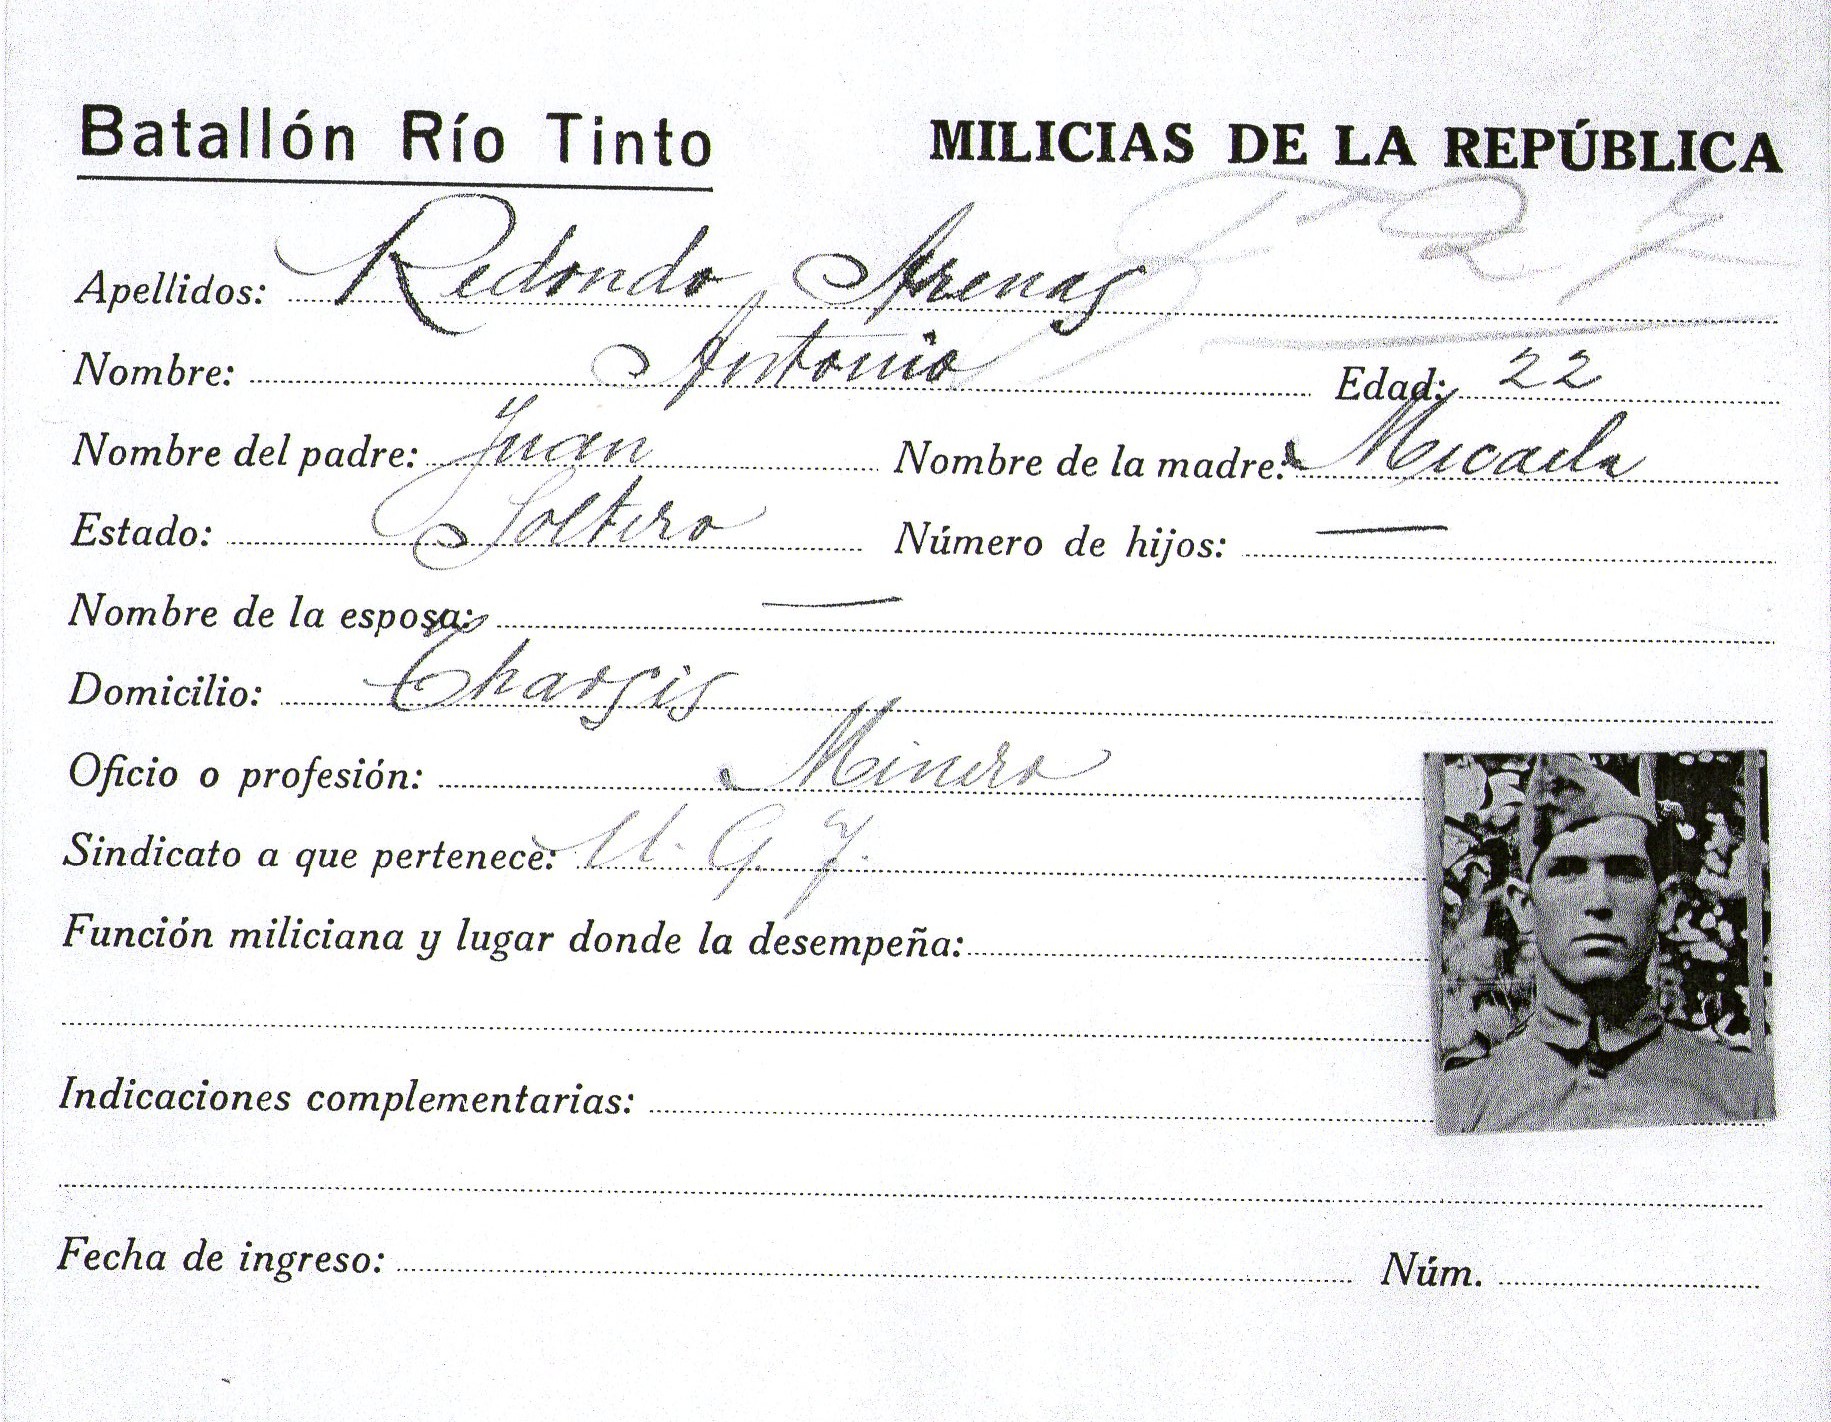 Batallón Río Tinto MILICIAS DE LA REPÚBLICA
Apellidos: Redondo Arenas
Nombre: Antonio Edad: 22
Nombre del padre: Juan Nombre de la madre: Micaela
Estado: Soltero Número de hijos: —
Nombre de la esposa: —
Domicilio:
Oficio o profesión: Minero
Sindicato a que pertenece: U. G. T.
Función miliciana y lugar donde la desempeña:
Indicaciones complementarias:
Fecha de ingreso: Núm.